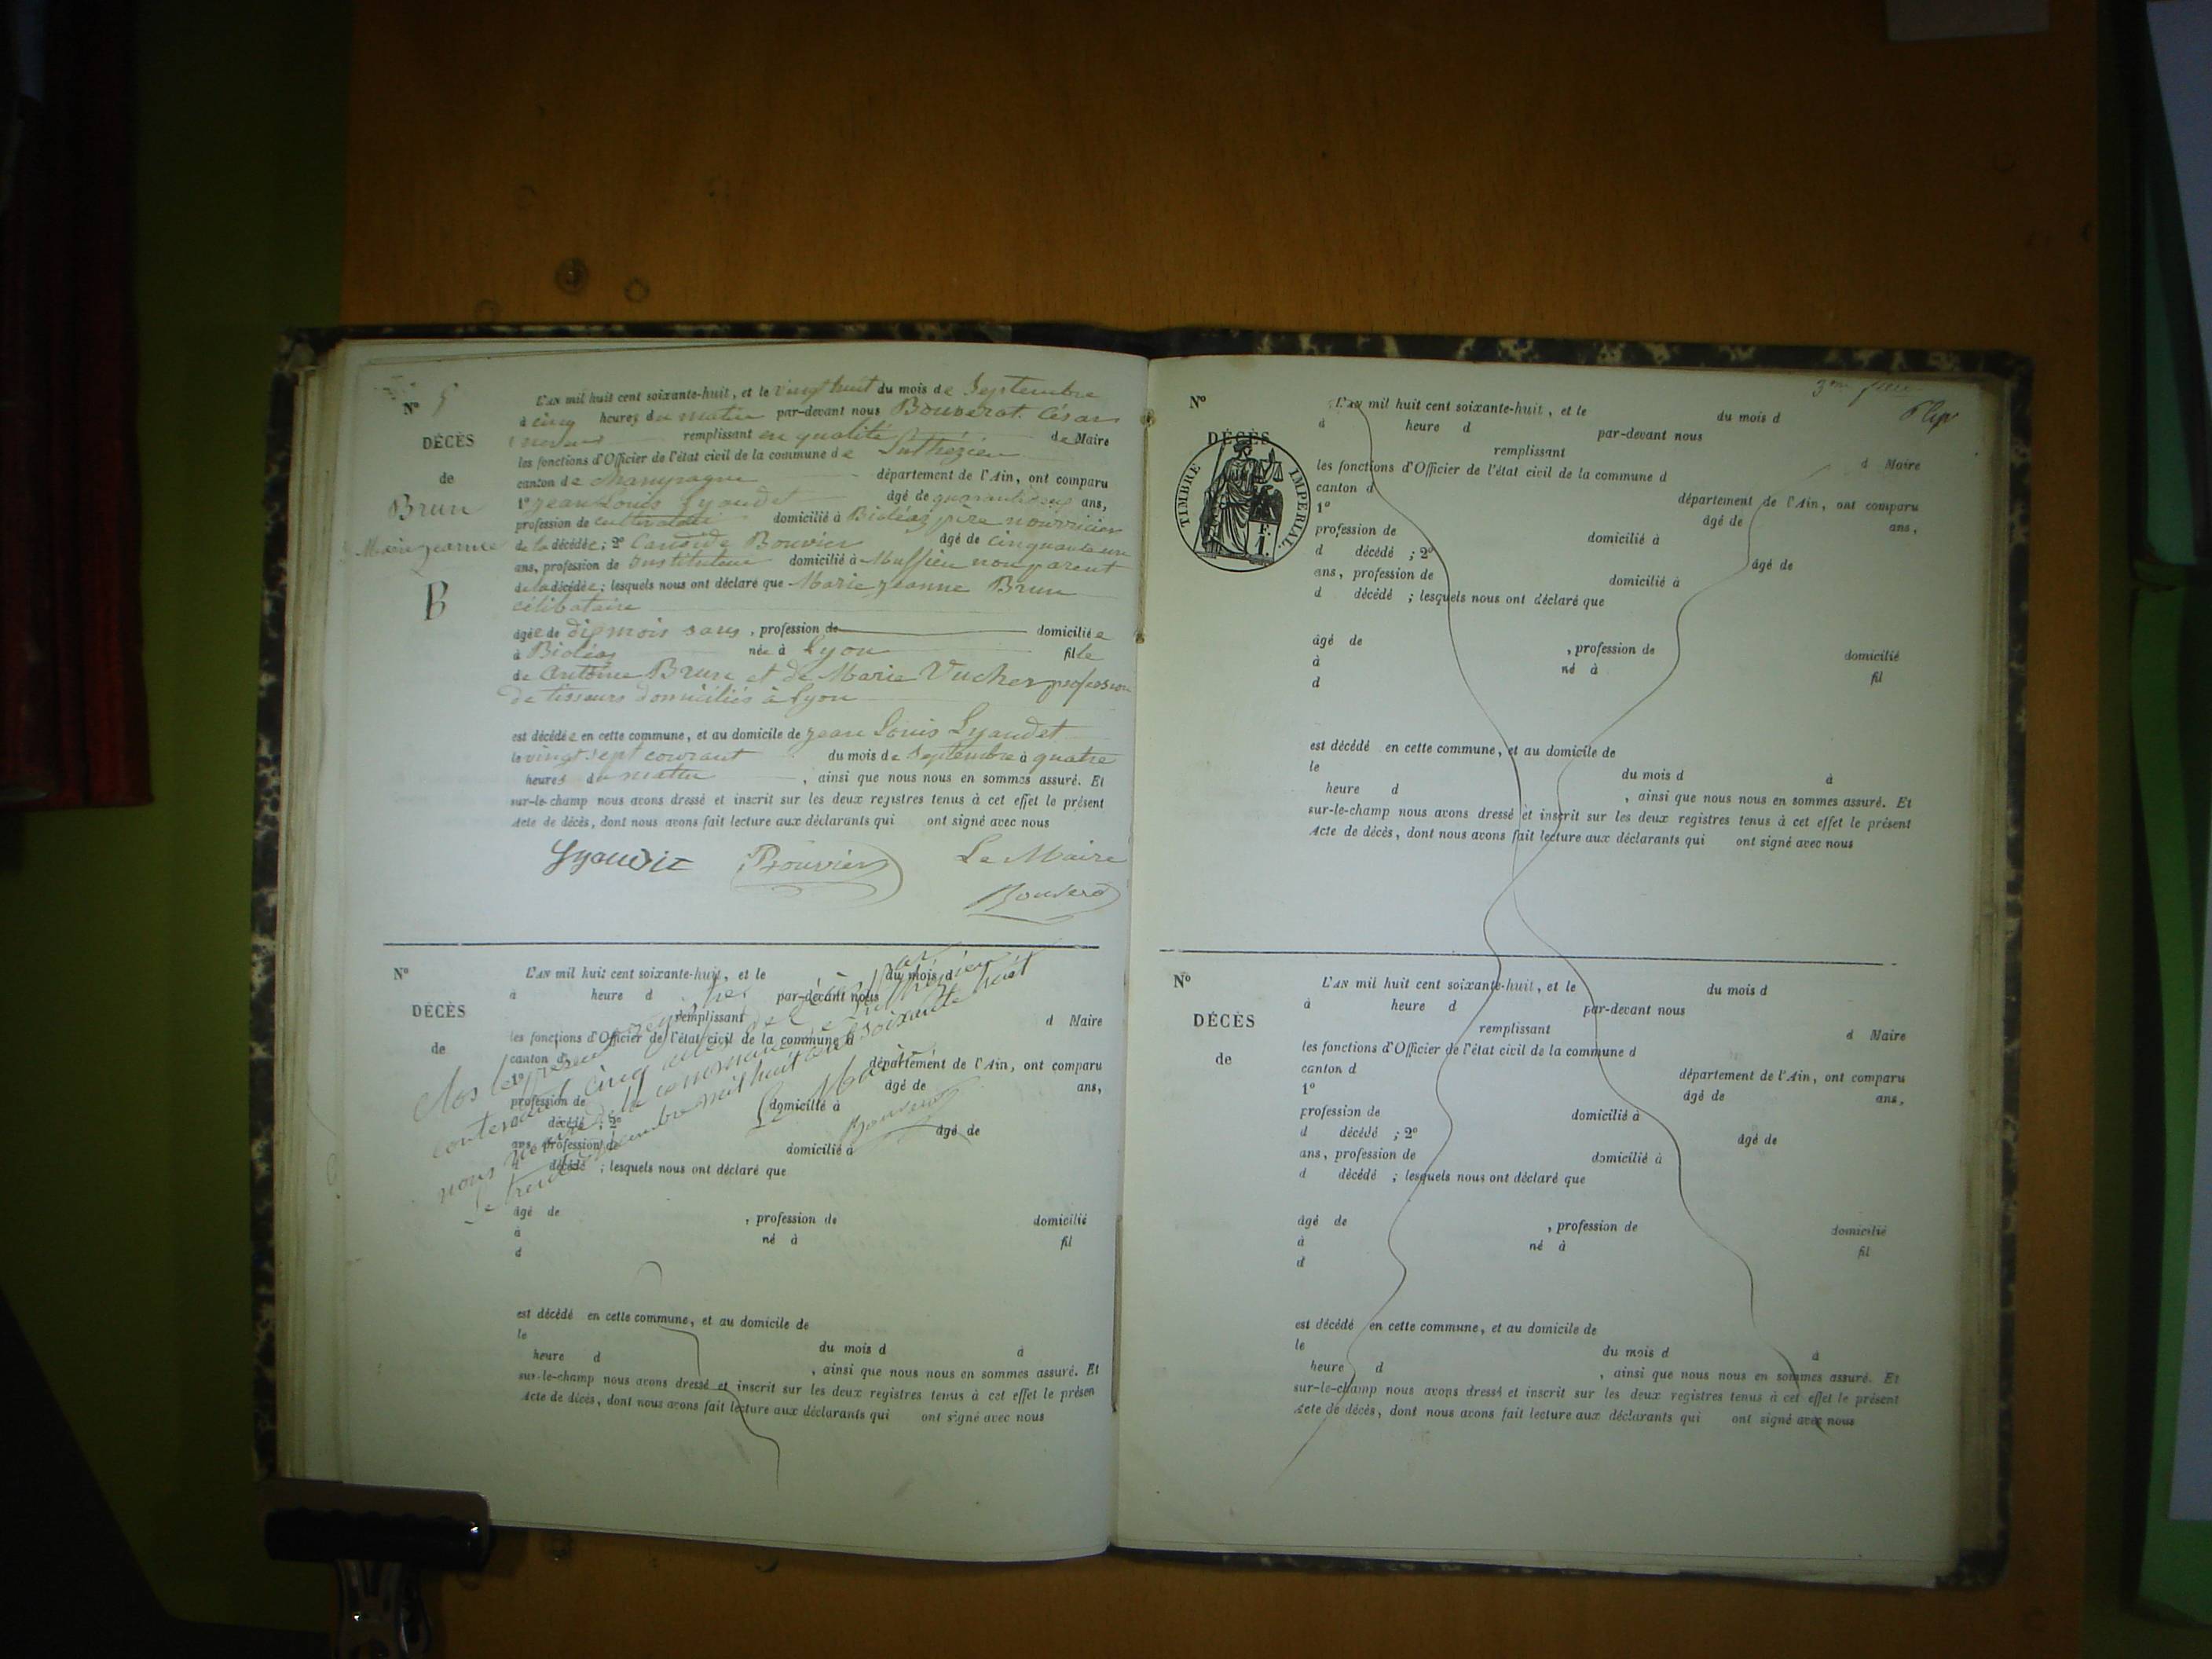 N° 5
DÉCÈS
de
Brun
Marie Jeanne
B
L'AN mil huit cent soixante-huit, et le vingt huit du mois de Septembre
à cinq heures du matin par-devant nous Bouverat César
remplissant en qualité de Maire
les fonctions d'Officier de l'état civil de la commune de Suthézieu
canton de Champagne département de l'Ain, ont comparu
1° Jean Louis Lyaudet âgé de ans,
profession de cultivateur domicilié à Bioléaz père nourricier
de la décédée; 2° Candide Bouvier âgé de cinquante un
ans, profession de instituteur domicilié à Ruffieu non parent
de la décédée; lesquels nous ont déclaré que Marie Jeanne Brun
célibataire
âgée de dix mois, profession de domiciliée
à Bioléaz née à Lyon fille
de Antoine Brun et de Marie Vucher profession
de tisseurs domiciliés à Lyon
est décédée en cette commune, et au domicile de Jean Louis Lyaudet
le vingt sept courant du mois de Septembre à quatre
heures du matin, ainsi que nous nous en sommes assuré. Et
sur-le-champ nous avons dressé et inscrit sur les deux registres tenus à cet effet le présent
Acte de décès, dont nous avons fait lecture aux déclarants qui ont signé avec nous
Lyaudet Bouvier Le Maire
Bouverat
N°
DÉCÈS
de
L'AN mil huit cent soixante-huit, et le du mois d
à heure d par-devant nous
remplissant d Maire
les fonctions d'Officier de l'état civil de la commune d
canton d département de l'Ain, ont comparu
1° âgé de ans,
profession de domicilié à
d décédé ; 2° âgé de
ans, profession de domicilié à
d décédé ; lesquels nous ont déclaré que
Clos le présent registre par
contenant cinq actes de décès
nous Maire de la commune de Suthézieu
le trente décembre mil huit cent soixante huit
Le Maire
Bouverat
âgé de , profession de domicilié
à né à fil
d
est décédé en cette commune, et au domicile de
le du mois d à
heure d , ainsi que nous nous en sommes assuré. Et
sur-le-champ nous avons dressé et inscrit sur les deux registres tenus à cet effet le présen
Acte de décès, dont nous avons fait lecture aux déclarants qui ont signé avec nous
3me
N°
DÉCÈS
TIMBRE IMPERIAL.
F.
1.
L'AN mil huit cent soixante-huit, et le du mois d
à heure d par-devant nous
remplissant d Maire
les fonctions d'Officier de l'état civil de la commune d
canton d département de l'Ain, ont comparu
1° âgé de ans,
profession de domicilié à
d décédé ; 2° âgé de
ans, profession de domicilié à
d décédé ; lesquels nous ont déclaré que
âgé de , profession de domicilié
à né à fil
d
est décédé en cette commune, et au domicile de
le du mois d à
heure d , ainsi que nous nous en sommes assuré. Et
sur-le-champ nous avons dressé et inscrit sur les deux registres tenus à cet effet le présent
Acte de décès, dont nous avons fait lecture aux déclarants qui ont signé avec nous
N°
DÉCÈS
de
L'AN mil huit cent soixante-huit, et le du mois d
à heure d par-devant nous
remplissant d Maire
les fonctions d'Officier de l'état civil de la commune d
canton d département de l'Ain, ont comparu
1° âgé de ans,
profession de domicilié à
d décédé ; 2° âgé de
ans, profession de domicilié à
d décédé ; lesquels nous ont déclaré que
âgé de , profession de domicilié
à né à fil
d
est décédé en cette commune, et au domicile de
le du mois d à
heure d , ainsi que nous nous en sommes assuré. Et
sur-le-champ nous avons dressé et inscrit sur les deux registres tenus à cet effet le présent
Acte de décès, dont nous avons fait lecture aux déclarants qui ont signé avec nous